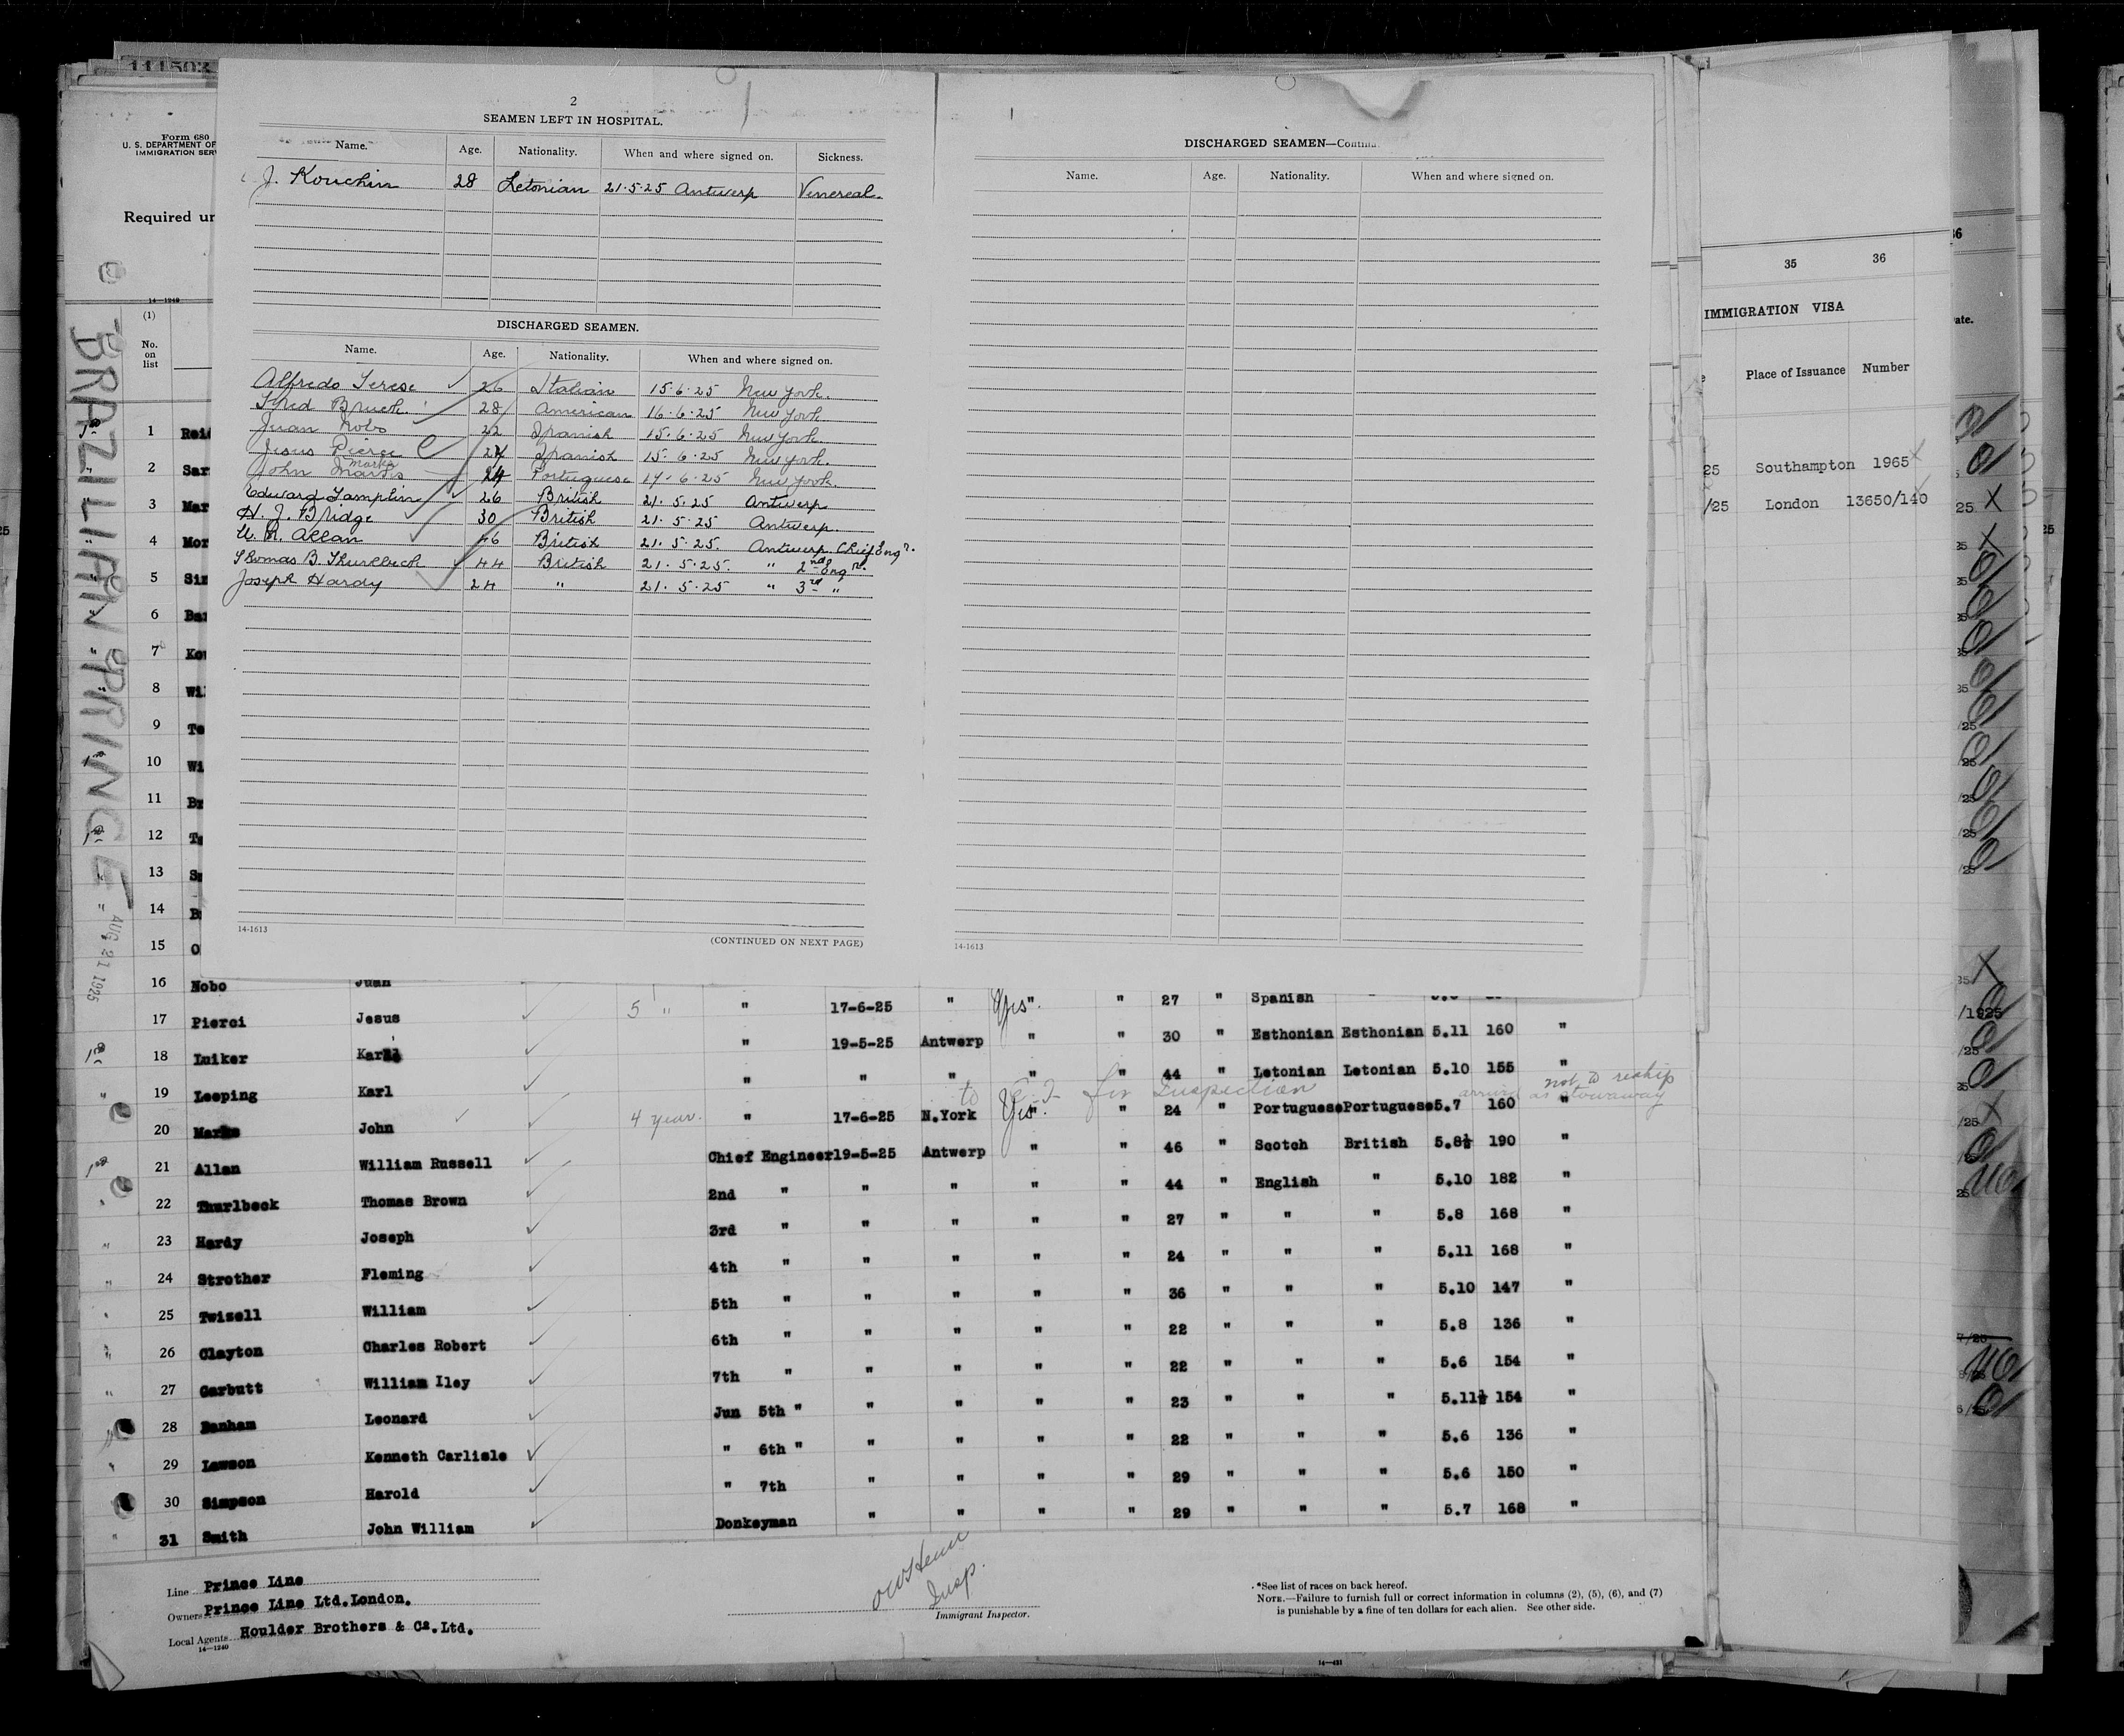 111503
Form 680
U. S. DEPARTMENT OF
IMMIGRATION SERV
Required un
14—1240
(1)
No.
on
list
BRAZILIAN PRINCE
AUG 21 1925
2
SEAMEN LEFT IN HOSPITAL.
Name. Age. Nationality. When and where signed on. Sickness.
J. Kouchin 28 Letonian 21.5.25 Antwerp Venereal.
DISCHARGED SEAMEN.
Name. Age. Nationality. When and where signed on.
Alfredo Terese 26 Italian 15.6.25 New York.
Fred Bruck. 28 American 16.6.25 New York
Juan Nobo 22 Spanish 15.6.25 New York
Jesus Pierce 27 Spanish 15.6.25 New York.
John Marks 24 Portuguese 17.6.25 New York.
Edward Tamplin 26 British 21.5.25 Antwerp
H. J. Bridge 30 British 21.5.25 Antwerp.
W. R. Allan 46 British 21.5.25. Antwerp Chief Engr.
Thomas B. Thurlbeck 44 British 21.5.25. " 2nd Engr.
Joseph Hardy 24 " 21.5.25 " 3rd "
14-1613
(CONTINUED ON NEXT PAGE)
DISCHARGED SEAMEN—Continu
Name. Age. Nationality. When and where signed on.
14-1613
35 36
IMMIGRATION VISA
Place of Issuance Number
25 Southampton 1965
/25 London 13650/140
36
ate.
1 Reid
2 Sar
3 Mar
4 Mor
5 Sin
6 Bar
7 Kou
8 Wil
9 Te
10 Wi
11 Br
12 T
13 S
14 B
15 O
16 Nobo Juan
17 Pierci Jesus 5 " " 17-6-25 " Yes " 27 " Spanish
18 Luiker Karl " 19-5-25 Antwerp " " 30 " Esthonian Esthonian 5.11 160 "
19 Leeping Karl " " " " " 44 " Letonian Letonian 5.10 155 "
to E.I. for Inspection
not to reship
arrived as stowaway
20 Marks John 4 year. " 17-6-25 N.York Yes " 24 " Portuguese Portuguese 5.7 160 "
21 Allan William Russell Chief Engineer 19-5-25 Antwerp " " 46 " Scotch British 5.8½ 190 "
22 Thurlbeck Thomas Brown 2nd " " " " " 44 " English " 5.10 182 "
23 Hardy Joseph 3rd " " " " " 27 " " " 5.8 168 "
24 Strother Fleming 4th " " " " " 24 " " " 5.11 168 "
25 Twizell William 5th " " " " " 36 " " " 5.10 147 "
26 Clayton Charles Robert 6th " " " " " 22 " " " 5.8 136 "
27 Garbutt William Iley 7th " " " " " 22 " " " 5.6 154 "
28 Danham Leonard Jun 5th " " " " " 23 " " " 5.11½ 154 "
29 Lawson Kenneth Carlisle " 6th " " " " " 22 " " " 5.6 136 "
30 Simpson Harold " 7th " " " " 29 " " " 5.6 150 "
31 Smith John William Donkeyman " " " " 29 " " " 5.7 168 "
Line Prince Line
Owners Prince Line Ltd.London.
Local Agents Houlder Brothers & Co.Ltd.
14—1240
Insp.
Immigrant Inspector.
*See list of races on back hereof.
NOTE.—Failure to furnish full or correct information in columns (2), (5), (6), and (7)
is punishable by a fine of ten dollars for each alien. See other side.
14—431